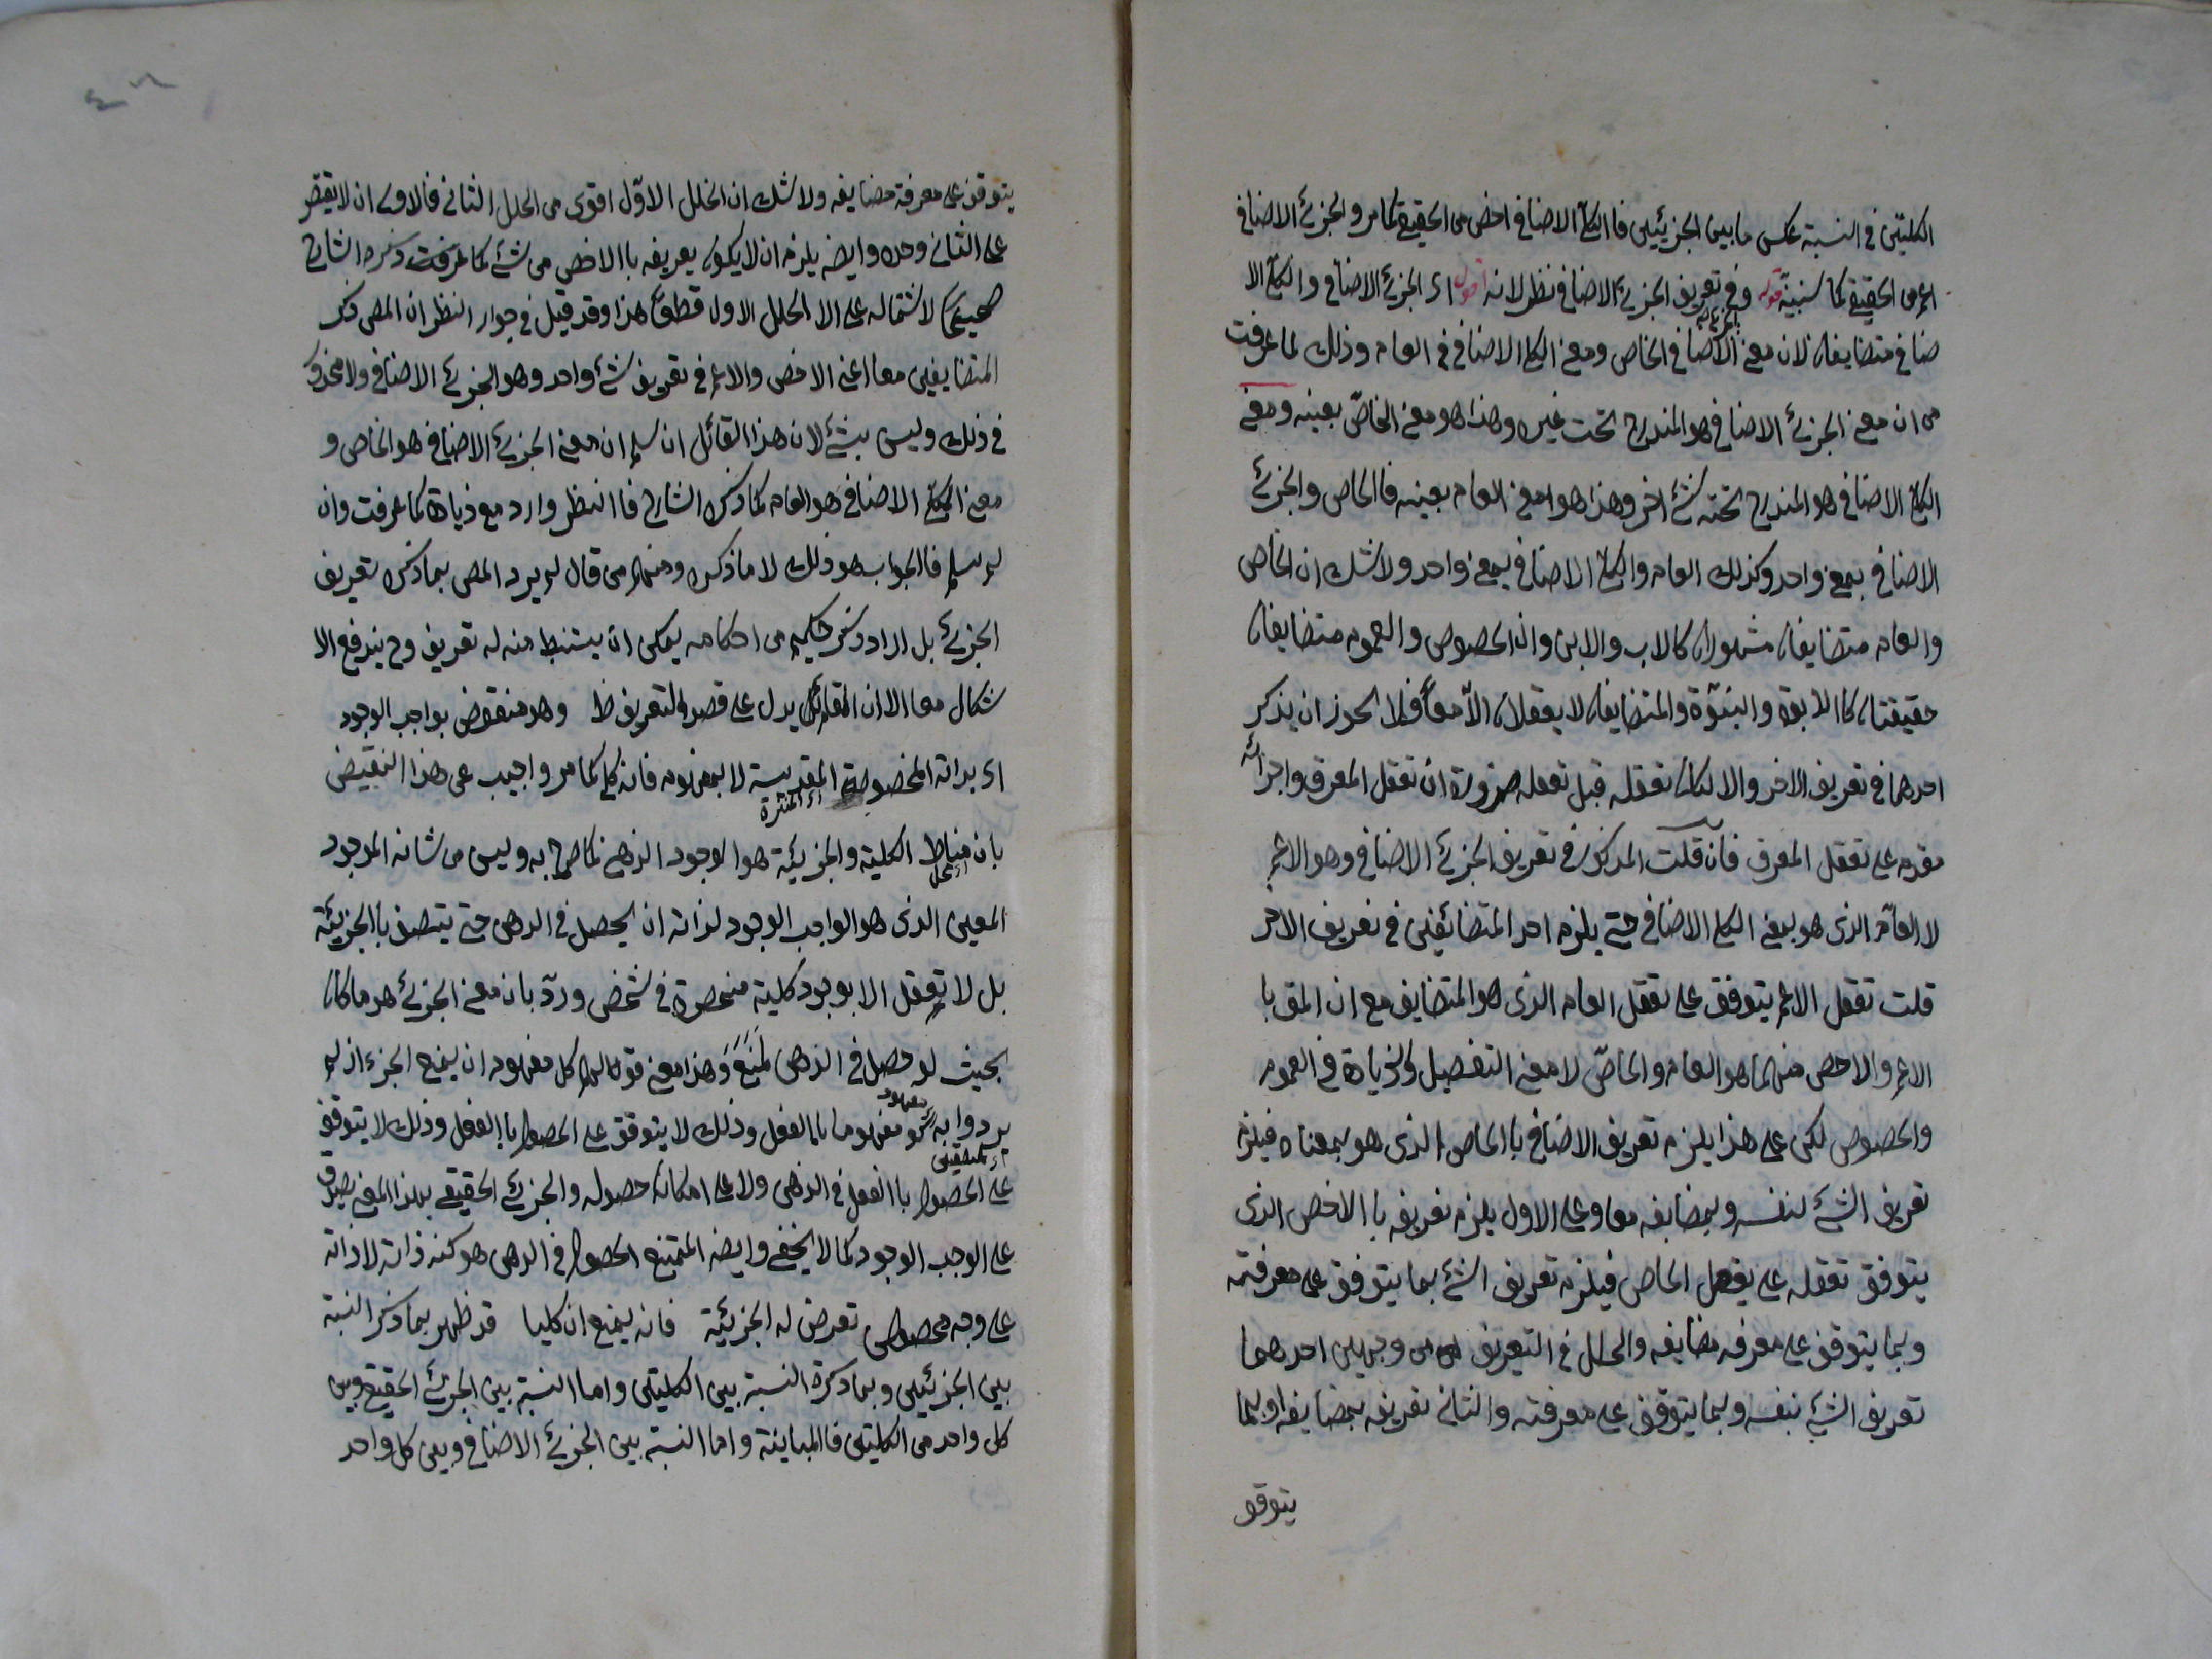 الكليتين في النسبة عكس ما بين الجزئيين فاالكلي الاضافي اخص من الحقيقي كما مر والجزئي الاضافي
اعم من الحقيقي كما سنبينه قوله وفي تعريف الجزئي الاضافي نظر لانه اقول اى الجزئي الاضافي والكلي الا
ضافي متضايفان لان معنى الاضافي الخاص ومعنى الكلي الاضافي في العام وذلك لما عرفت
من ان معنى الجزئي الاضافي هو المندرج تحت غيره وهذا هو معنى الخاصّ بعينه ومعنى
الكلي الاضافي هو المندرج تحته شئ اخر وهذا هو معنى العام بعينه فاالخاص والجزئي
الاضافي بمعنى واحد وكذلك العام والكلي الاضافي بمعنى واحد ولا شك ان الخاص
والعام متضايفان مشهوران كالاب والابن وان الخصوص والعموم متضايفان
حقيقتان كاالابوة والبنوّة والمتضايفان لا يعقلان الاّ معاً فلا يجوز ان يذكر
احدهما في تعريف الاخر والا لكان تعقله قبل تعقله ضرورة ان تعقل المعرف واجزائه
مقدم على تعقل المعرف فان قلت المذكور في تعريف الجزئي الاضافي وهو الاعم
لا العامّ الذى هو بمعنى الكلي الاضافي حتى يلزم احد المتضائفين في تعريف الاخر
قلت تعقل الاعم يتوقف على تعقل العام الذى هو المتضايف مع ان المق با
الاعم والاخص منهما هو العام والخاصّ لا معنى التفضيل والزيادة في العموم
والخصوص لكن على هذا يلزم تعريف الاضافي باالخاص الذى هو بمعناه فيلزم
تعريف الشئ لنفسه وبمضايفه معا وعلى الاول يلزم تعريفه باالاخص الذى
يتوقف تعقله على تعقل الخاص فيلزم تعريف الشئ بما يتوقف على معرفته
وبما يتوقف على معرفه مضايفه والخلل في التعريف من وجهين احدهما
تعريف الشئ بنفسه وبما يتوقف على معرفته والثاني تعريفه بمضايفه او بما
يتوقف
يتوقف على معرفة مضايفه ولا شك ان الخلل الاوّل اقوى من الخلل الثاني فالاولى ان لا يقتصر
على الثاني وحده وايضه يلزم ان لا يكون تعريفه باالاخص من شئ كما عرفت ذكره الشارح
صحيحا لاشتماله على الا الخلل الاول قطعاً هذا وقد قيل في جواب النظر ان المص ذكر
المتضايفين معا اعني الاخص والاعم في تعريف شئ واحد وهو الجزئي الاضافي ولا محذور
في ذلك وليس بشئ لان هذا القائل ان سلم ان معنى الجزئي الاضافي هو الخاص و
معنى الكلي الاضافي هو العام كما ذكره الشارح فاالنظر وارد مع زيادة كما عرفت وان
لم يسلم فاالجواب هو ذلك لا ما ذكره ومنهم من قال لم يرد المص بما ذكره تعريف
الجزئي بل اراد ذكر حكم من احكامه يمكن ان يستنبط منه له تعريف وح يندفع الا
شكال معا الا ان يدل على قصد التعريف ظ وهو منقوض بواجب الوجود
اى بذاته المخصوصة المقدسة لا بمفهومه فانه كلي كما مر واجيب عن هذا النقيض
اى المنزهة
بان مناط الكلية والجزئية هو الوجود الذهني كما صرح به وليس من شانه الموجود
اى محل
المعين الذى هو الواجب الوجود لذاته ان يحصل في الذهن حتى يتصف باالجزئية
بل لا تعقل الا بوجود كلية منحصرة في شخص وردّ بان معنى الجزئي هو ما كان
بحيث لو حصل في الذهن لمنع وهذا معنى قولهم كل مفهوم ان يمنع الجزء اذ لم
يريدوا به مفهوما باالفعل وذلك لا يتوقف على الحصول باالفعل وذلك لا يتوقف
على الحصول باالفعل في الذهن ولا على امكان حصوله والجزئي الحقيقي بهذا المعنى يصدق
على الوجب الوجود كما لا يخفى وايضه الممتنع الحصول في الذهن هو كنه ذاته لا ذاته
على وجه مخصوص تعرض له الجزئية فانه يمنع ان كليا قد ظهر بما ذكر النسبة
بين الجزئيين وبما ذكره النسبة بين الكليتين واما النسبة بين الجزئي الحقيقي وبين
كل واحد من الكليتين فاالمباينة واما النسبة بين الجزئي الاضافي وبين كل واحد